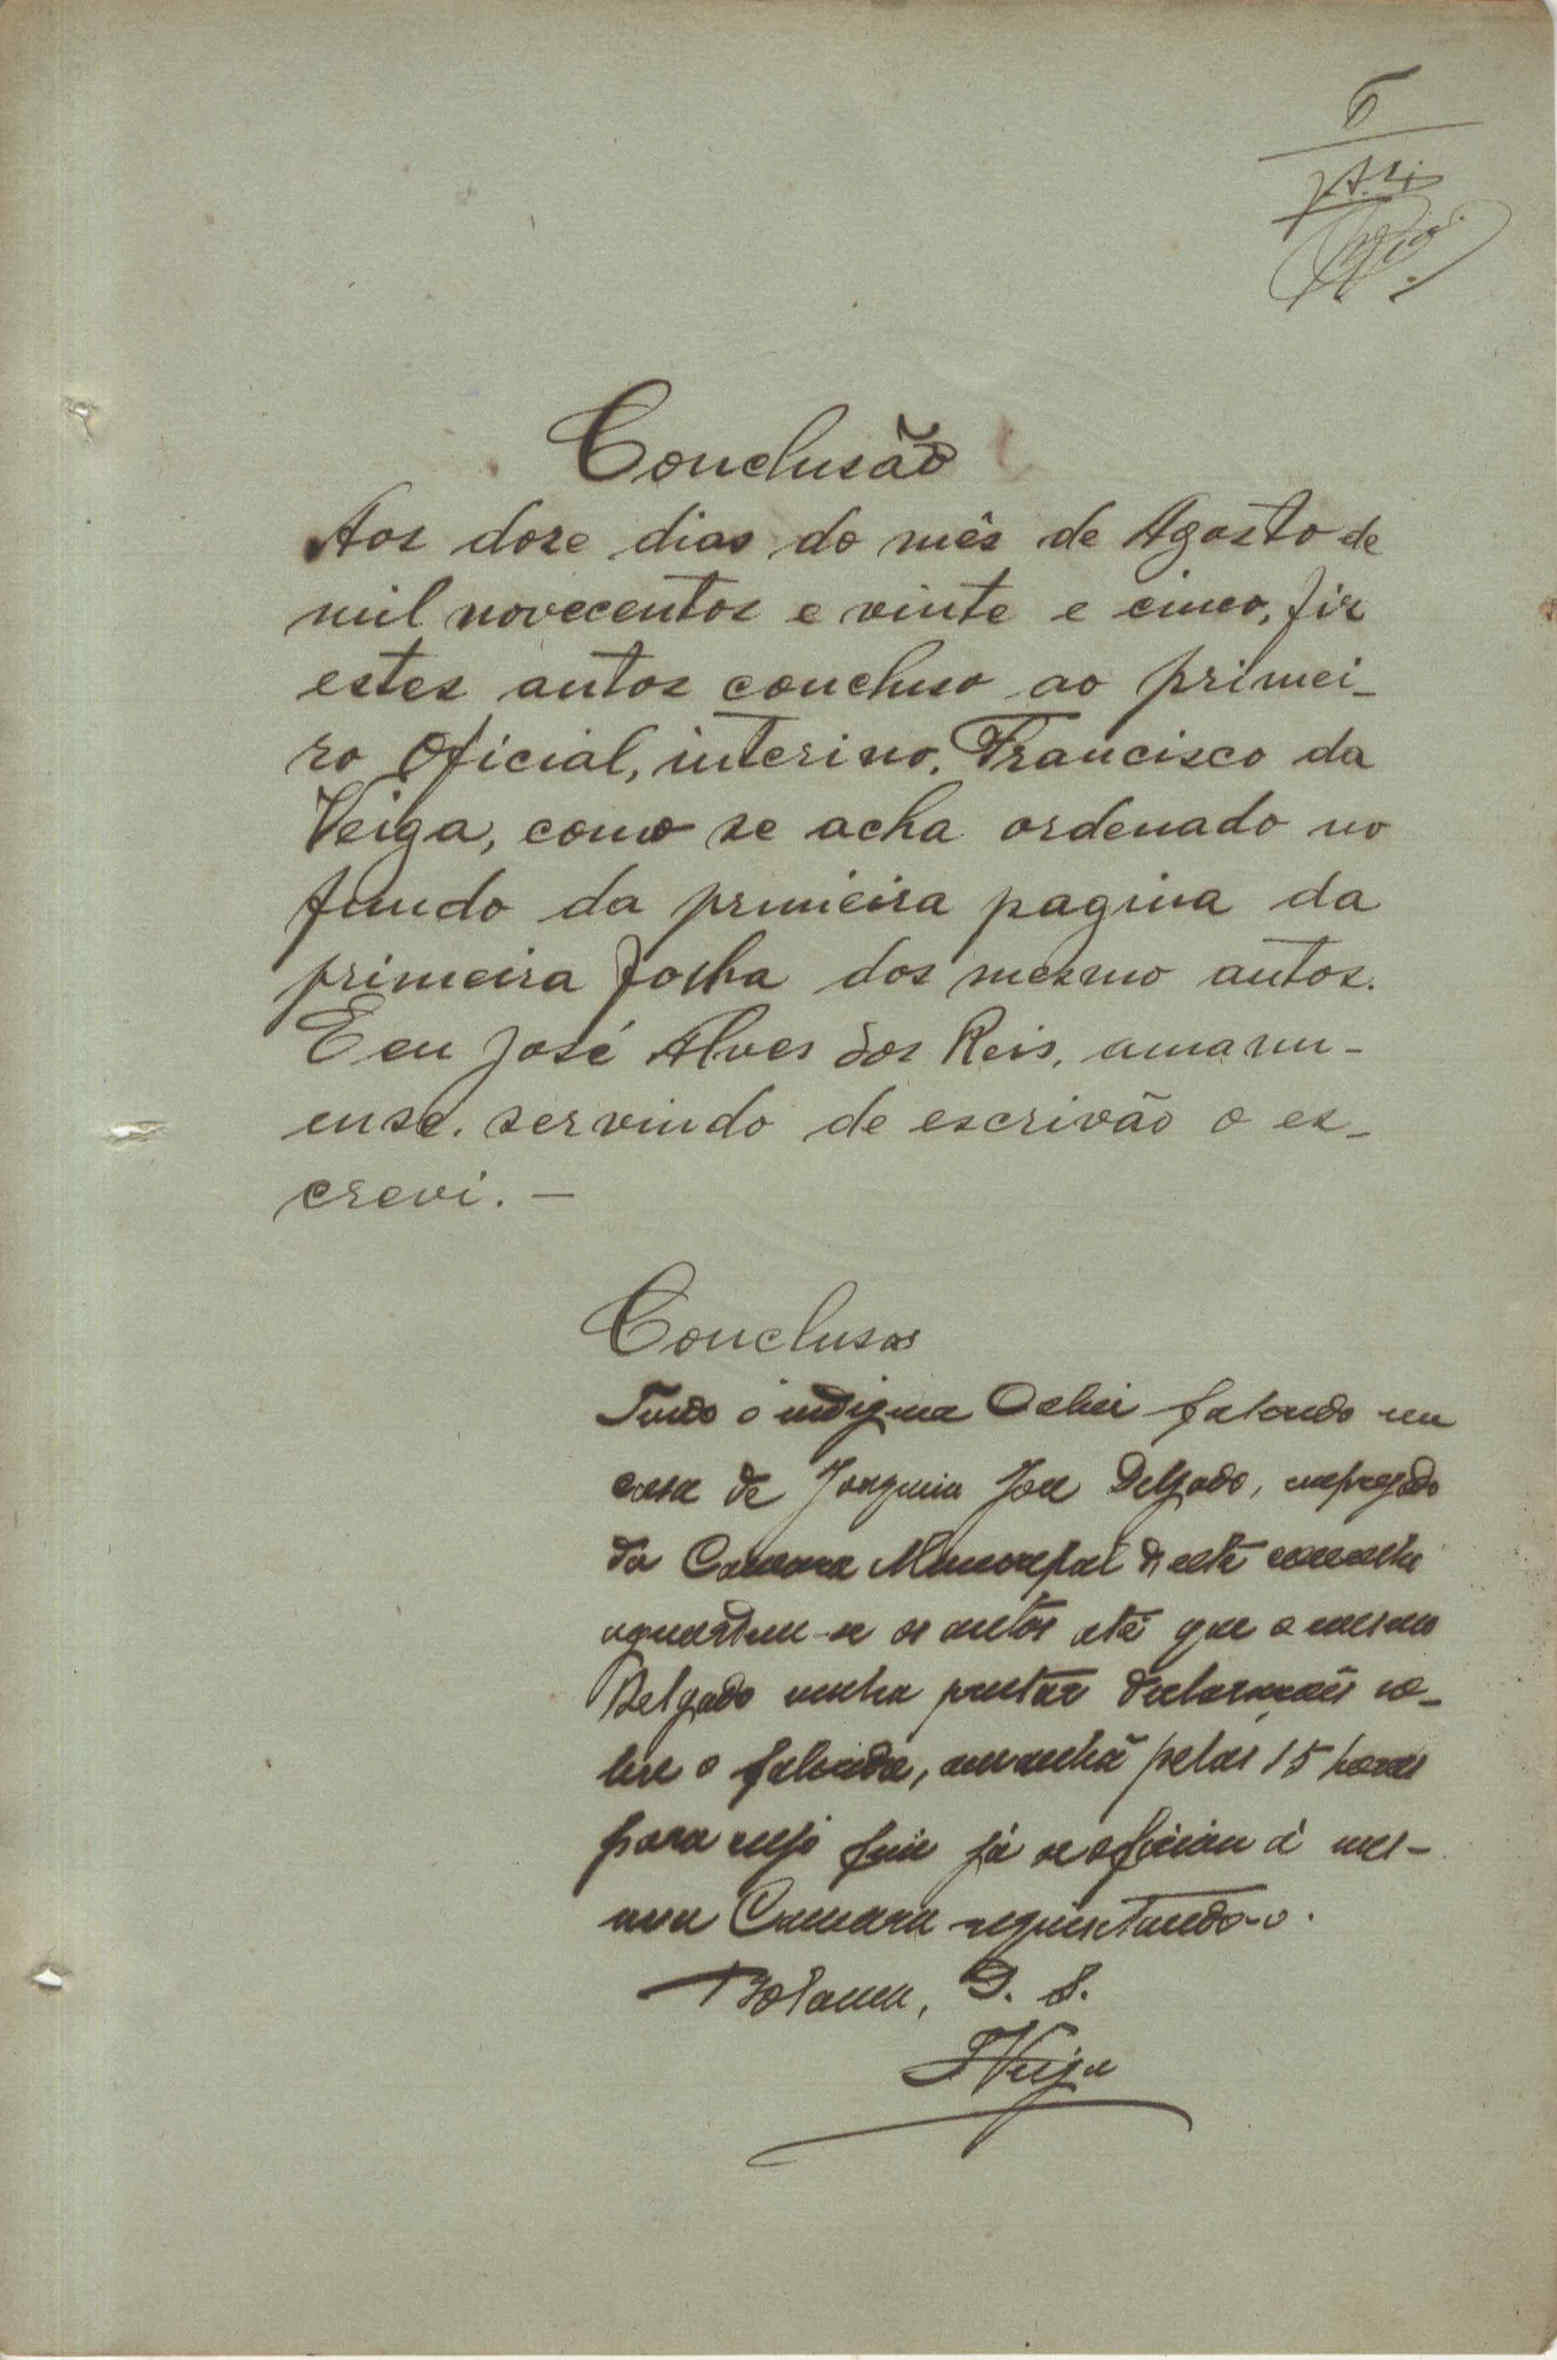 6
Conclusão
Aos doze dias do mês de Agosto de
mil novecentos e vinte e cinco, fiz
estes autos concluso ao primei-
ro Oficial, interino, Francisco da
Veiga, como se acha ordenado no
fundo da primeira pagina da
primeira folha dos mesmo autos.
E eu José Alves dos Reis, amanu-
ense, servindo de escrivão o es-
crevi. —
Conclusos
Tendo o indigena falecido em
casa de Joaquim José Delgado, empregado
da Camara Municipal deste concelho
aguardem-se os autos até que o mesmo
Delgado venha prestar declarações so-
bre o falecido, amanhã pelas 15 horas
para cujo fim já se oficiou á mes-
ma Camara requisitando-o.
Bolama, D. S.
FVeiga